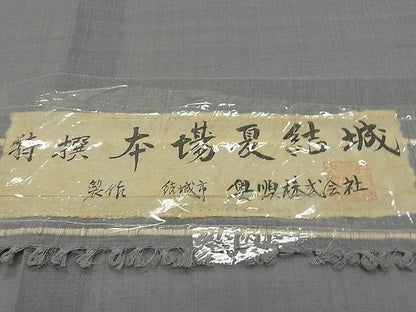 特撰 本場夏結城
製作 結城市 奥順株式会社